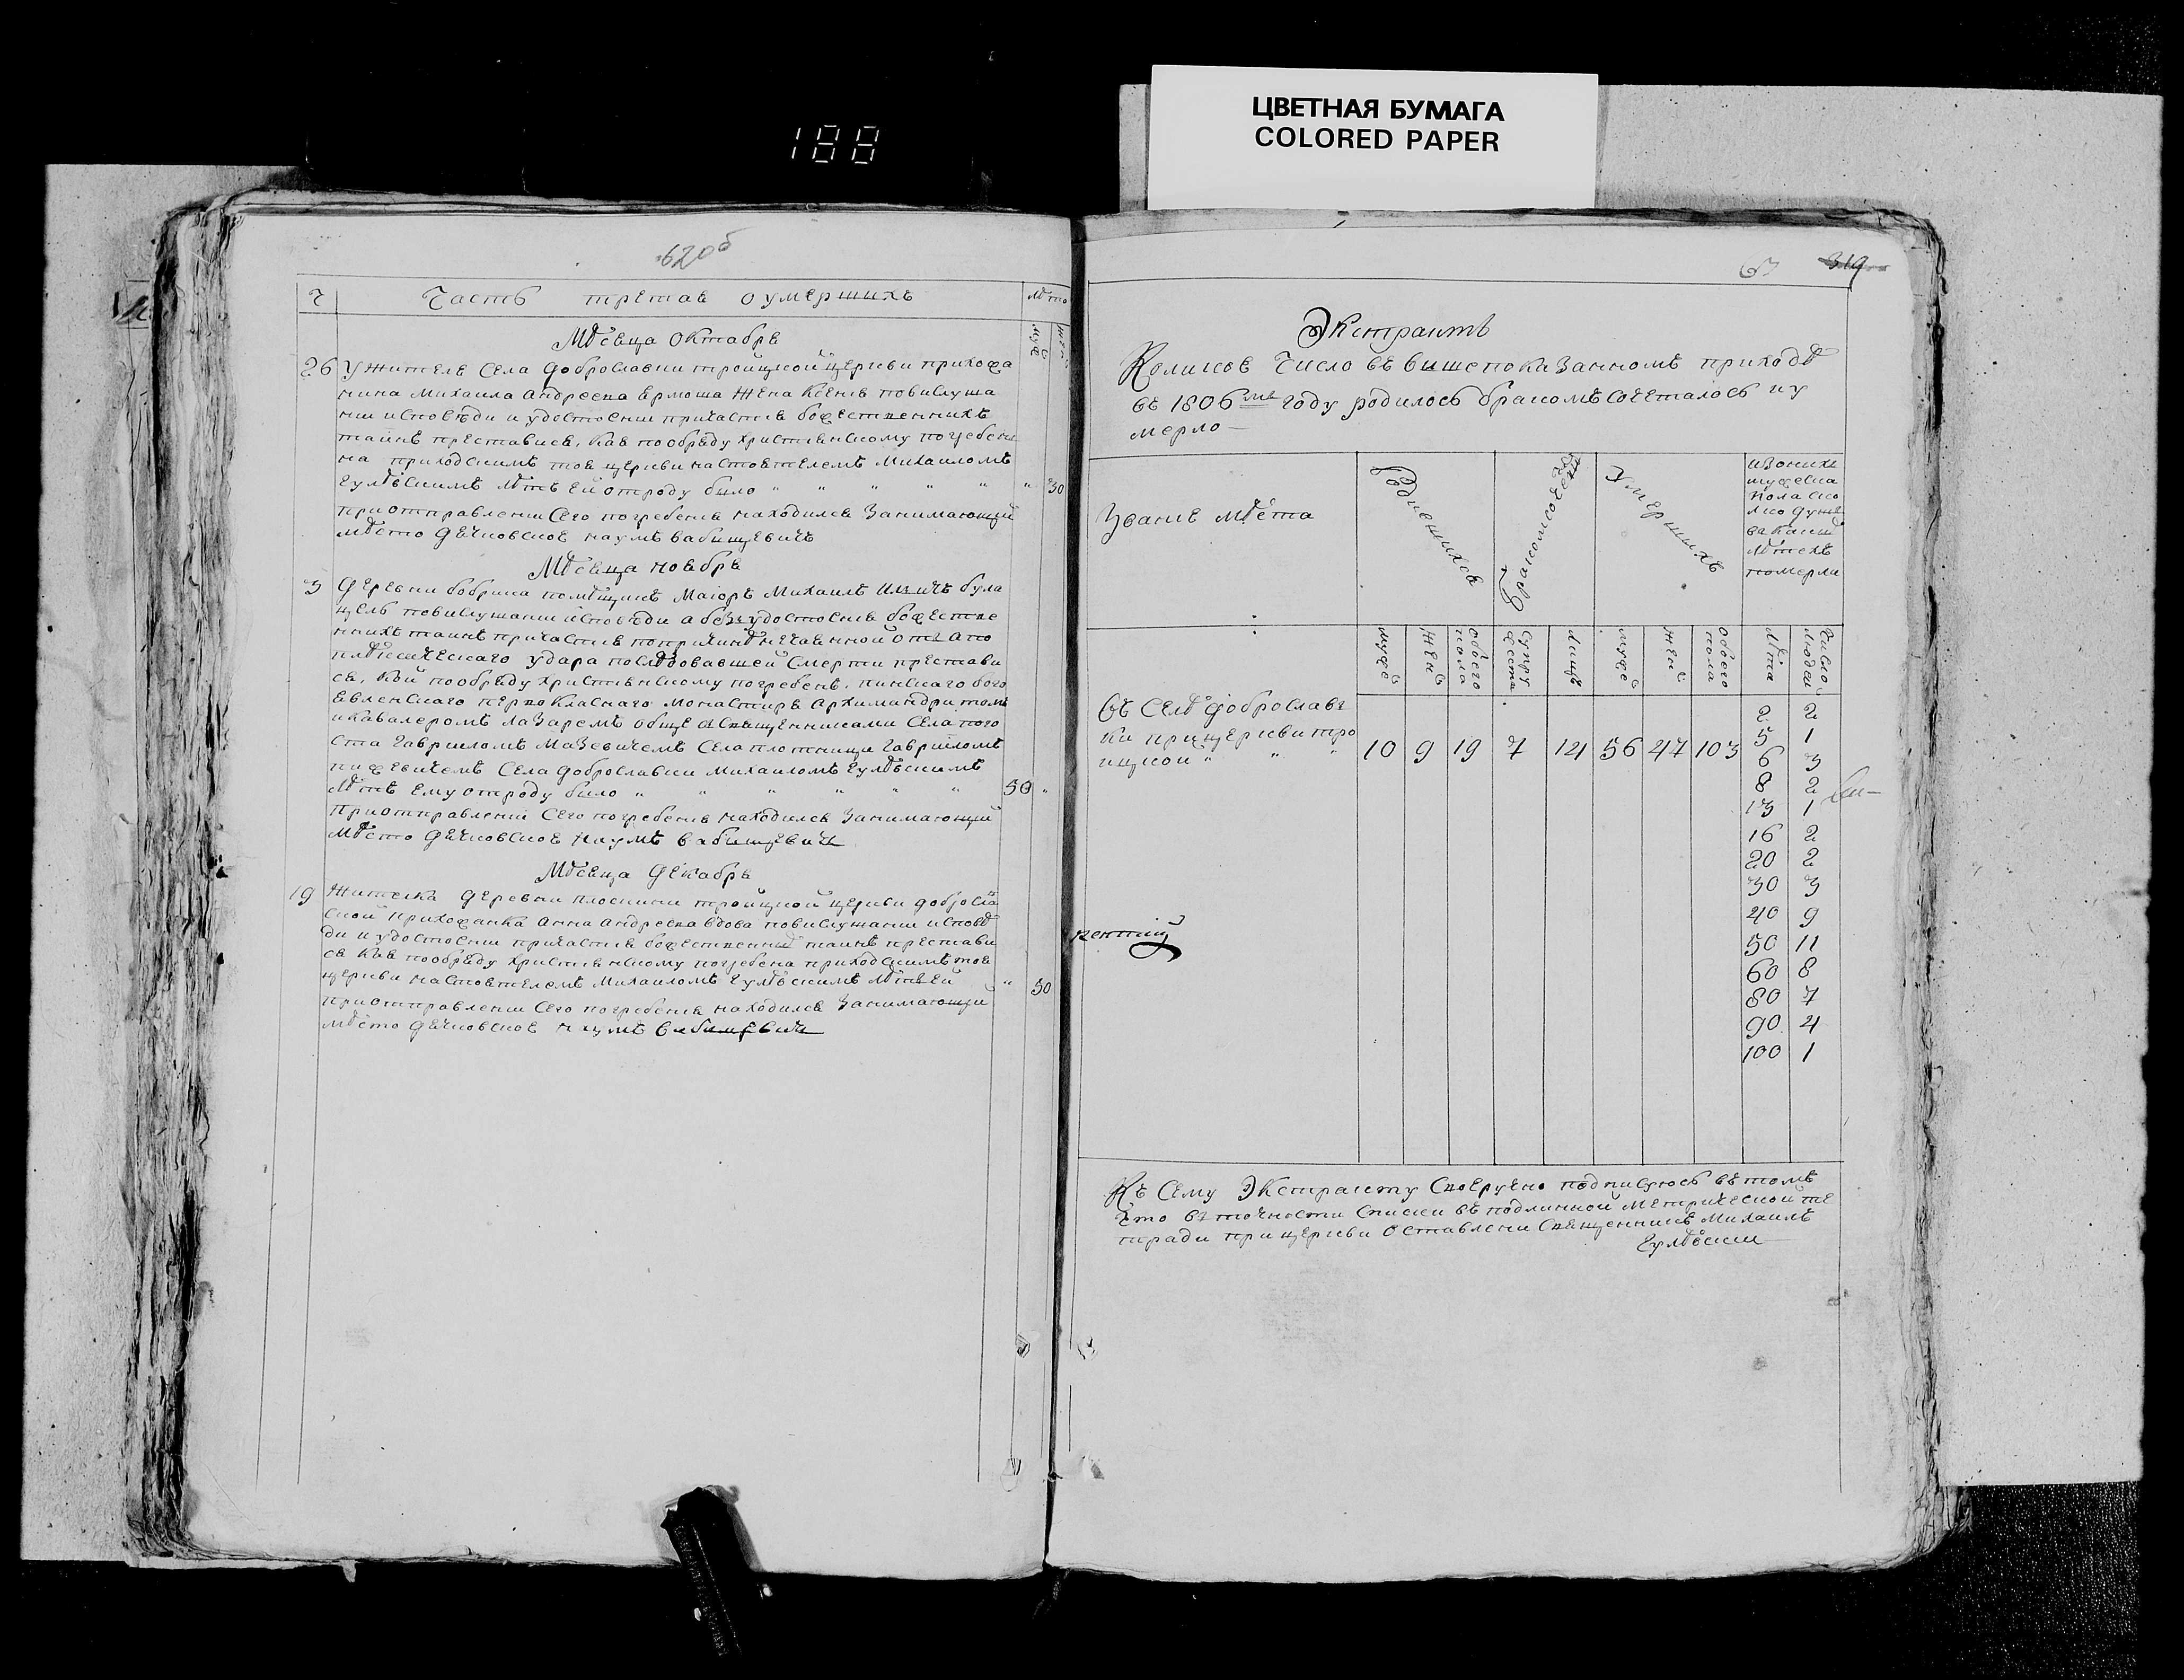 ЦВЕТНАЯ БУМАГА
COLORED PAPER
188
62об
Ч
Часть третая о умершихъ
Лѣто
муж
жен
Мѣсяца Октабря
26 У жителя Села Доброславки троицкой церкви прихожа
нина Михаила Андреева Ярмоша жена Ксенія повислуша
нии исповѣди и удостоении причастия божественнихъ
таинъ преставися, кая пообряду християнскому погребен
на приходскимъ тоя церкви настоятелемъ Михаиломъ
Лѣтъ ей отроду било " " " " " " 30
приотправлении Сего погребения находился Занимающий
мѣсто дячковское Наумъ Бабищевичъ
Мѣсяца ноября
3 Деревни бобрика помѣщикъ Маіоръ Михаилъ Була
цель повислушании исповѣди а безъ удостоения божестве
ннихъ таинъ причастия попричинѣ нечаянной отъ апо
плѣксическаго удара последовавшей Смерти престави
ся, кой пообряду християнскому погребенъ, пинскаго бого
явленскаго первокласнаго монастиря Архимандритомъ
и кавалеромъ Лазаремъ обще Священниками Села пого
ста Гавриломъ Мазевичемъ Села плотници Гавриломъ
Села Доброславки Михаиломъ
Лѣтъ ему отроду било " " " " " " 50 "
приотправлении Сего погребения находился Занимающий
мѣсто дячковское Наумъ Бабищевич
Мѣсяца Декабря
19 Жителка деревни плоскини троицкой церкви добросла
ской прихожанка Анна Андреева вдова повислушании исповѣ
ди и удостоении причастия божественний таинъ престави
ся кая пообряду християнскому погребена приходскимъ тоя
церкви настоятелемъ Михаиломъ Лѣтъ ей " 50
приотправлении Сего погребения находился Занимающи
мѣсто дячковское Наумъ Бабищевич
63 319
Экстрактъ
Коликое Число въ вишепоказанномъ приходѣ
въ 1806мъ году родилось бракомъ сочеталось и у
мерло
Звание мѣста
Родившихся
Бракомсочетан
Умершихъ
изонихъ
мужеска
пола ско
лко душъ
вакаких
лѣтехъ
померли
муж
жен
обоего
пола
супру
жеств
лицъ
муж
жен
обоего
пола
лѣта
Число
людей
въ Селѣ Доброслав
ки прицеркви тро
ицкой " " 10 9 19 7 14 56 47 103
2 2
5 1
6 3
8 2
13 1
16 2
20 2
30 3
40 9
50 11
60 8
80 7
90 4
100 1
Къ Сему Экстракту Своеручно подписуюсь въ томъ
Что въ точности Списки въ подлинной метрической те
тради прицеркви оставлени Священникъ Михаилъ